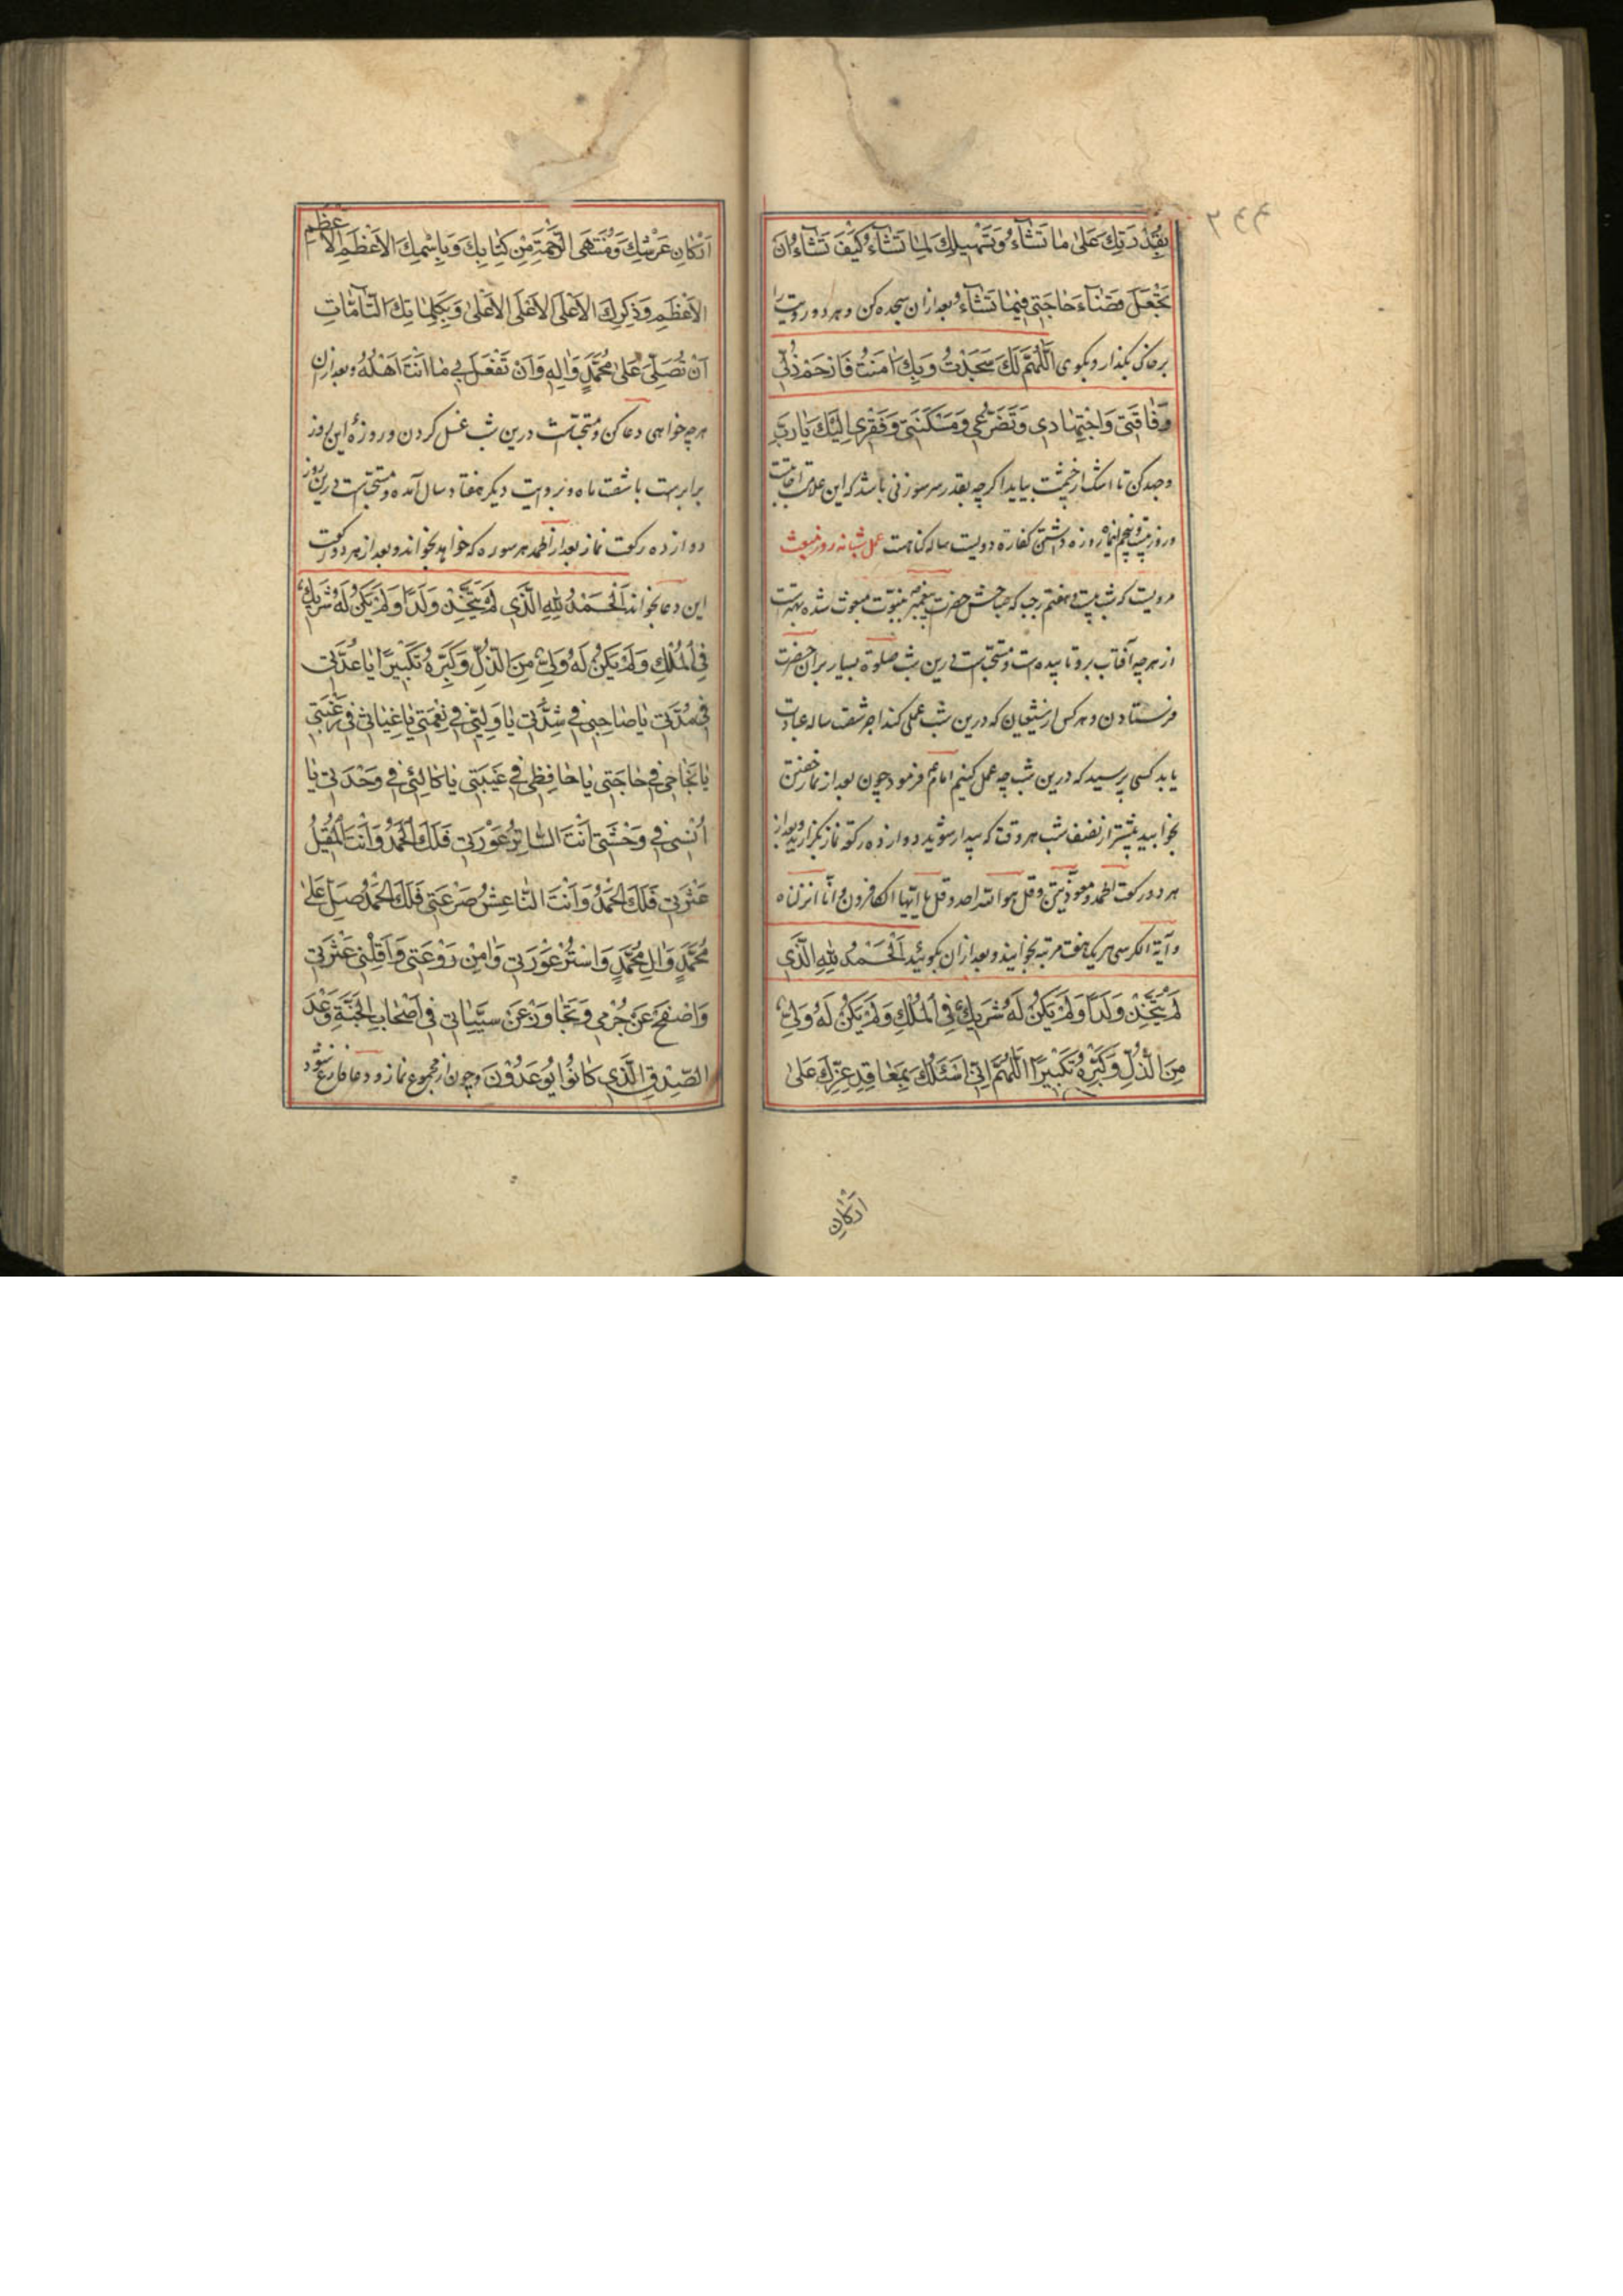 ۲۴۴
بِقُدْرَتِكَ عَلىٰ مٰا تَشٰآءُ وَتَسْهيلِكَ لِمٰا تَشٰآءُ كَيْفَ تَشٰآءُ اَنْ
تَجْعَلَ قَضٰآءَ حٰاجَتي فيمٰا تَشٰآءُ وبعد ازان سجده كن و هر دو رويت را
بر خاك بگذار و بگوى اَللّٰهُمَّ لَكَ سَجَدْتُ وَبِكَ اٰمَنْتُ فَارْحَمْ ذُلّي
وَفٰاقَتي وَاجْتِهٰادي وَتَضَرُّعي وَمَسْكَنَتي وَفَقْري اِلَيْكَ يٰا رَبِّ
وجهد كن تا اشك از چشمت بيايد اكرچه بقدر سر سوزنى باشد كه اين علامت اجابتست
و روز بيست و پنجم اينماه روزه داشتن كفاره دويست ساله كناهست عمل شبانه روز مبعث
مرويست كه شب بيست و هفتم رجب كه صباحش حضرت پيغمبر بنبوّت مبعوث شده بهترست
از هرچه آفتاب برو تابيده‌ست و مستحبّ است درين شب صلوة بسيار بر ان حضرت
فرستادن و هر كس از شيعيان كه درين شب عملى كند اجر شصت ساله عبادت
يابد كسى پرسيد كه درين شب چه عمل كنيم امام ع فرمود چون بعد از نماز خفتن
بخوابيد پيشتر از نصف شب هر وقت كه بيدار شويد دوازده ركعت نماز بكزاريد و بعد از
هر دو ركعت الحمد و معوّذتين و قل هو اللّه احد و قل يا ايّها الكافرون و انّا انزلناه
و آية الكرسى هر يك هفت مرتبه بخوانيد و بعد ازان بگوئيد اَلْحَمْدُ لِلّٰهِ الَّذي
لَمْ يَتَّخِذْ وَلَدًا وَلَمْ يَكُنْ لَهُ شَريكٌ فِي الْمُلْكِ وَلَمْ يَكُنْ لَهُ وَلِيٌّ
مِنَ الذُّلِّ وَكَبِّرْهُ تَكْبيرًا اَللّٰهُمَّ اِنّي اَسْئَلُكَ بِمَعٰاقِدِ عِزِّكَ عَلىٰ
اَرْكٰانِ
اَرْكٰانِ عَرْشِكَ وَمُنْتَهَى الرَّحْمَةِ مِنْ كِتٰابِكَ وَبِاسْمِكَ الْاَعْظَمِ الْاَعْظَمِ
الْاَعْظَمِ وَذِكْرِكَ الْاَعْلَى الْاَعْلَى الْاَعْلىٰ وَبِكَلِمٰاتِكَ التّٰآمّٰاتِ
اَنْ تُصَلِّيَ عَلىٰ مُحَمَّدٍ وَاٰلِهِ وَاَنْ تَفْعَلَ بي مٰا اَنْتَ اَهْلُهُ و بعد ازان
هرچه خواهى دعا كن و مستحبّ است درين شب غسل كردن و روزهٔ اين روز
برابرست با شصت ماه و بروايت ديكر هفتاد سال آمده و مستحبّ است درين روز
دوازده ركعت نماز بعد از الحمد هر سوره كه خواهد بخواند و بعد از هر دو ركعت
اين دعا بخواند اَلْحَمْدُ لِلّٰهِ الَّذي لَمْ يَتَّخِذْ وَلَدًا وَلَمْ يَكُنْ لَهُ شَريكٌ
فِي الْمُلْكِ وَلَمْ يَكُنْ لَهُ وَلِيٌّ مِنَ الذُّلِّ وَكَبِّرْهُ تَكْبيرًا يٰا عُدَّتي
في مُدَّتي يٰا صٰاحِبي في شِدَّتي يٰا وَلِيّي في نِعْمَتي يٰا غِيٰاثي في رَغْبَتي
يٰا نَجٰاحي في حٰاجَتي يٰا حٰافِظي في غَيْبَتي يٰا كٰالِئي في وَحْدَتي يٰا
اُنْسي في وَحْشَتي اَنْتَ السّٰاتِرُ عَوْرَتي فَلَكَ الْحَمْدُ وَاَنْتَ الْمُقيلُ
عَثْرَتي فَلَكَ الْحَمْدُ وَاَنْتَ النّٰاعِشُ صَرْعَتي فَلَكَ الْحَمْدُ صَلِّ عَلىٰ
مُحَمَّدٍ وَاٰلِ مُحَمَّدٍ وَاسْتُرْ عَوْرَتي وَاٰمِنْ رَوْعَتي وَاَقِلْني عَثْرَتي
وَاصْفَحْ عَنْ جُرْمي وَتَجٰاوَزْ عَنْ سَيِّئٰاتي في اَصْحٰابِ الْجَنَّةِ وَعْدَ
الصِّدْقِ الَّذي كٰانُوا يُوعَدُونَ و چون از مجموع نماز و دعا فارغ شود